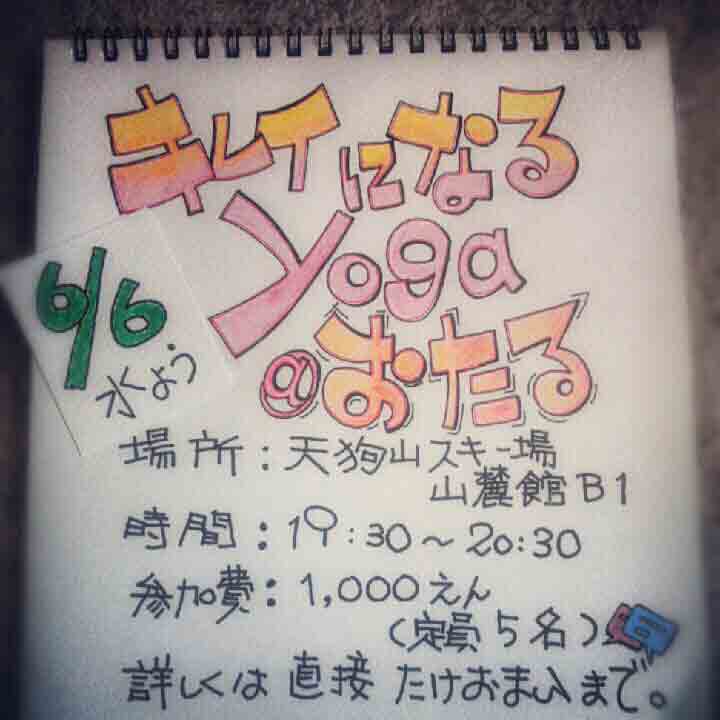 キレイになる
yoga
@おたる
6/6
水よう
場所：天狗山スキー場
山麓館B1
時間：19:30～20:30
参加費：1,000えん
(定員5名)
詳しくは直接たけおまいまで。